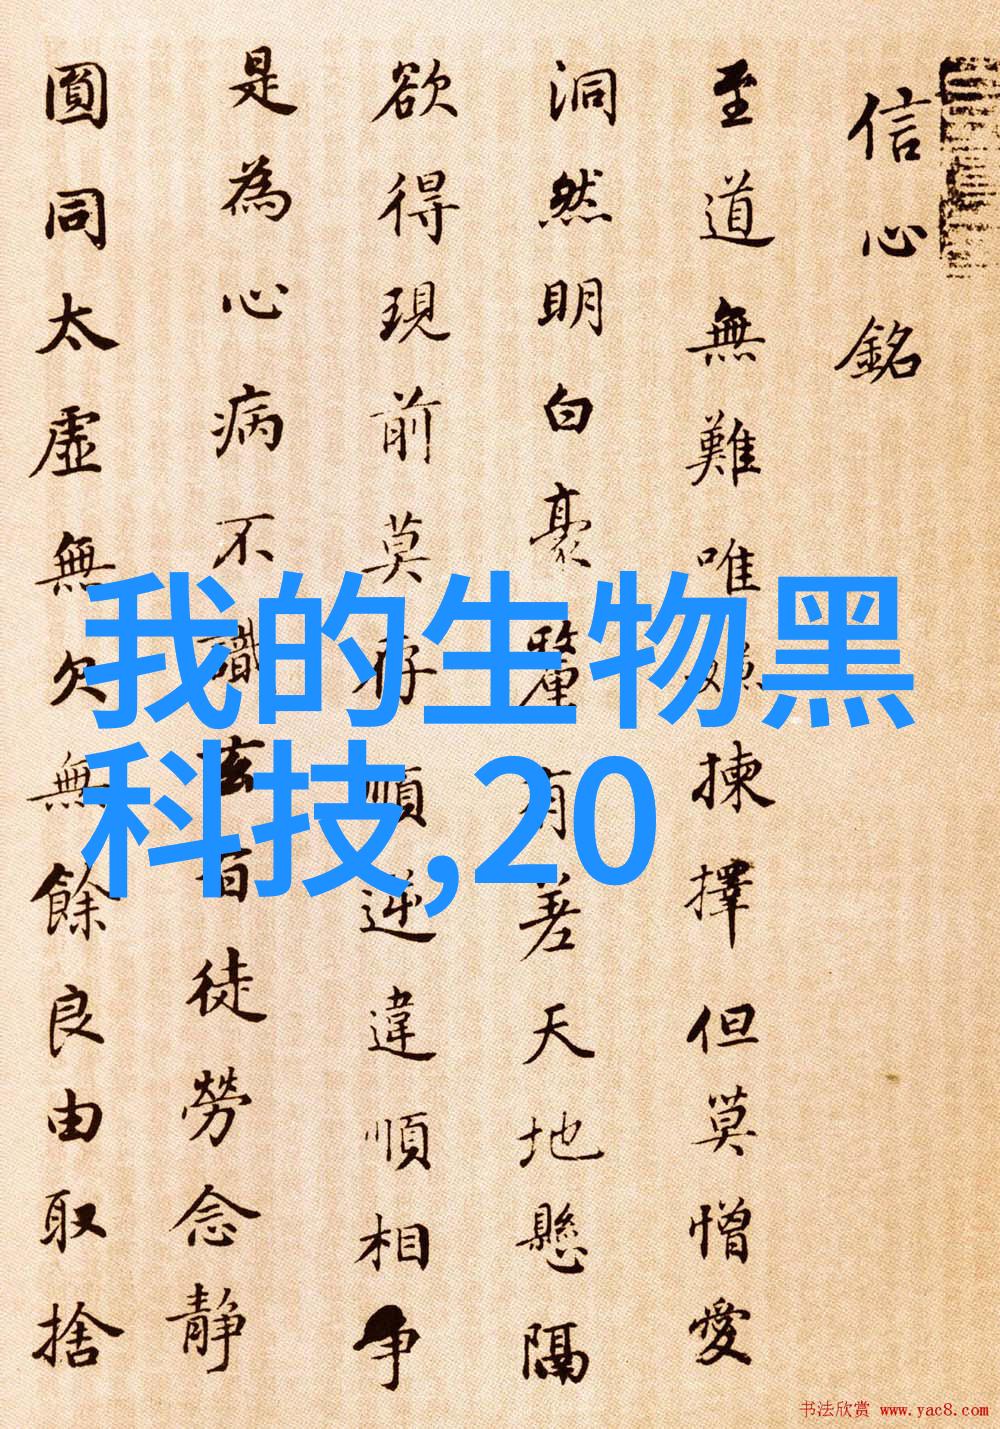 信心銘
至道無難唯嫌揀擇但莫憎愛
洞然明白豪釐有差天地懸隔
欲得現前莫存順逆違順相争
是為心病不識玄旨徒勞念静
圓同太虛無欠無餘良由取捨
我的生物黑
科技,20
书法欣赏 www.yac8.com